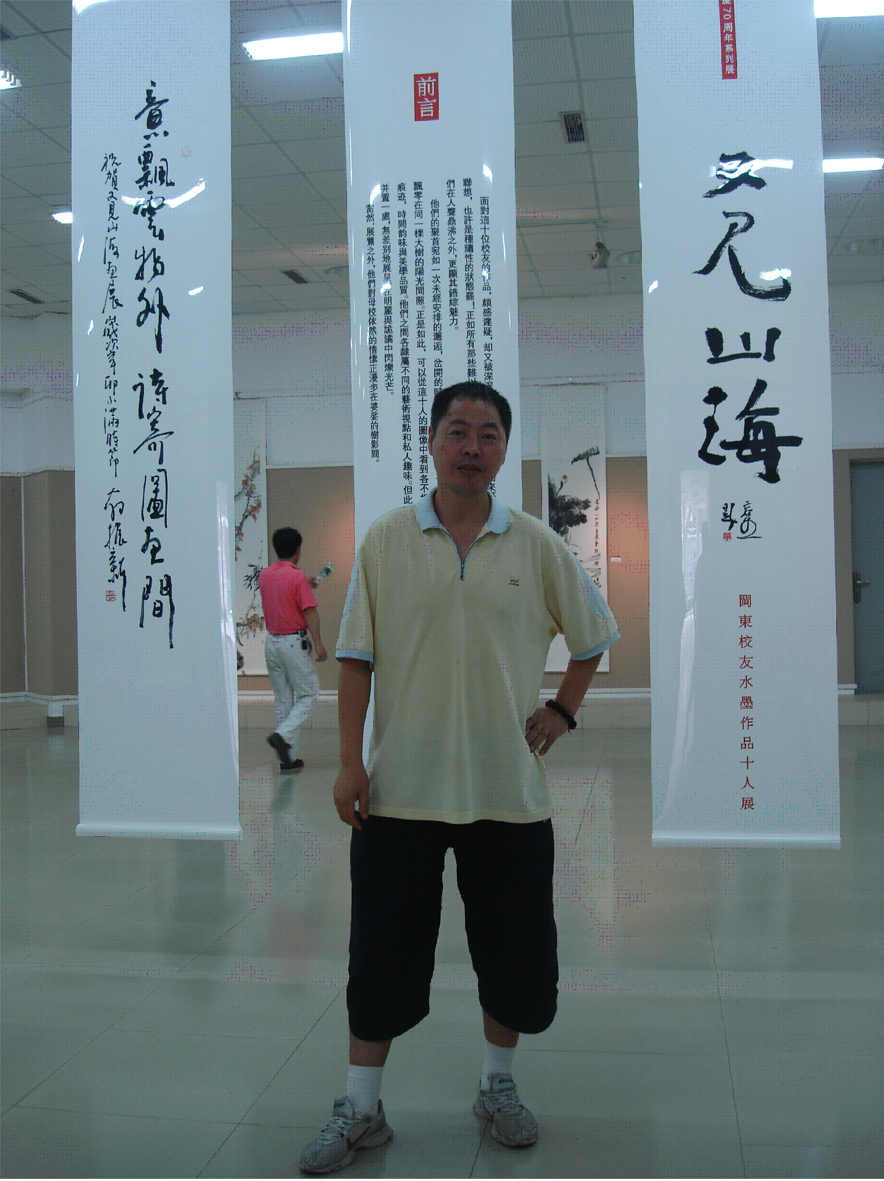 慶70周年系列展
又见山海
閩東校友水墨作品十人展
前言
面對這十位校友的作品，頗感遲疑，却又被深
聯想，也許是種隨性的狀態罷！正如所有那些難
們在人聲鼎沸之外，更顯其錯綜魅力。
他們的聚首宛如一次未經安排的邂逅，岔開的
飄零在同一棵大樹的陽光間隙。正是如此，可以從這十人的圖像中看到各不
痕迹，時間韵味與美學品質。他們之間各隸屬不同的藝術視點和私人趣味。但此
并置一處，無差别地展呈，在明麗與詭譎中閃爍光芒。
當然，展覽之外，他們對母校依然的情愫正漫步在婆娑的樹影間。
意飄雲物外詩寄圖画間
祝賀又見山海画展歲次辛卯小滿時節翁振新